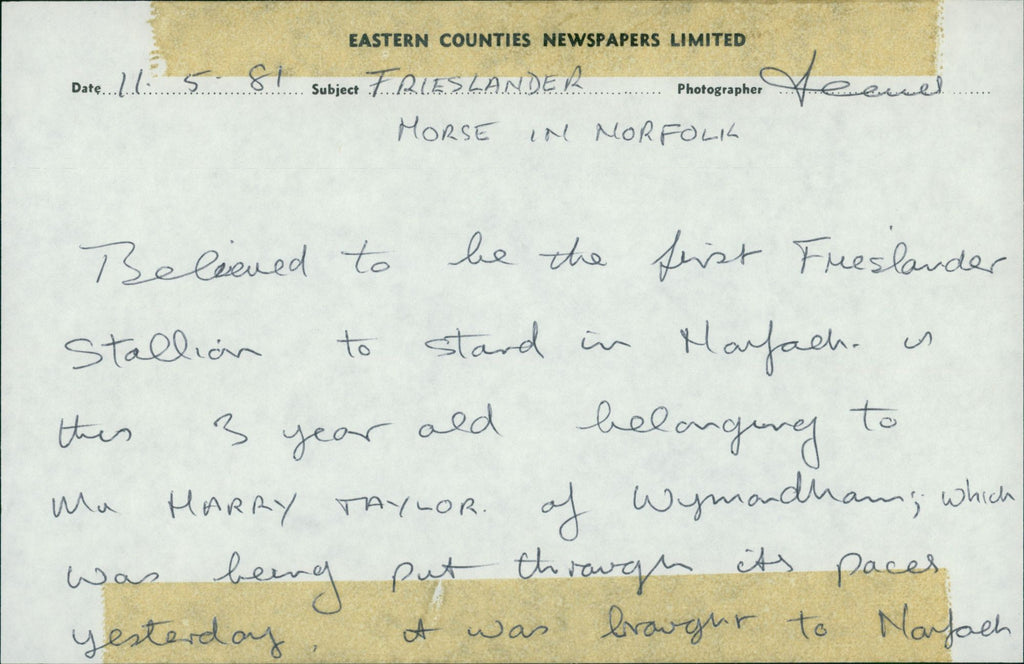 EASTERN COUNTIES NEWSPAPERS LIMITED
Date 11. 5 81 Subject FRIESLANDER Photographer
HORSE IN NORFOLK
Believed to be the first Frieslander
Stallion to stand in Norfolk. is
this 3 year old belonging to
Mr HARRY TAYLOR. of Wymondham; which
was being put through its paces
yesterday. It was brought to Norfolk